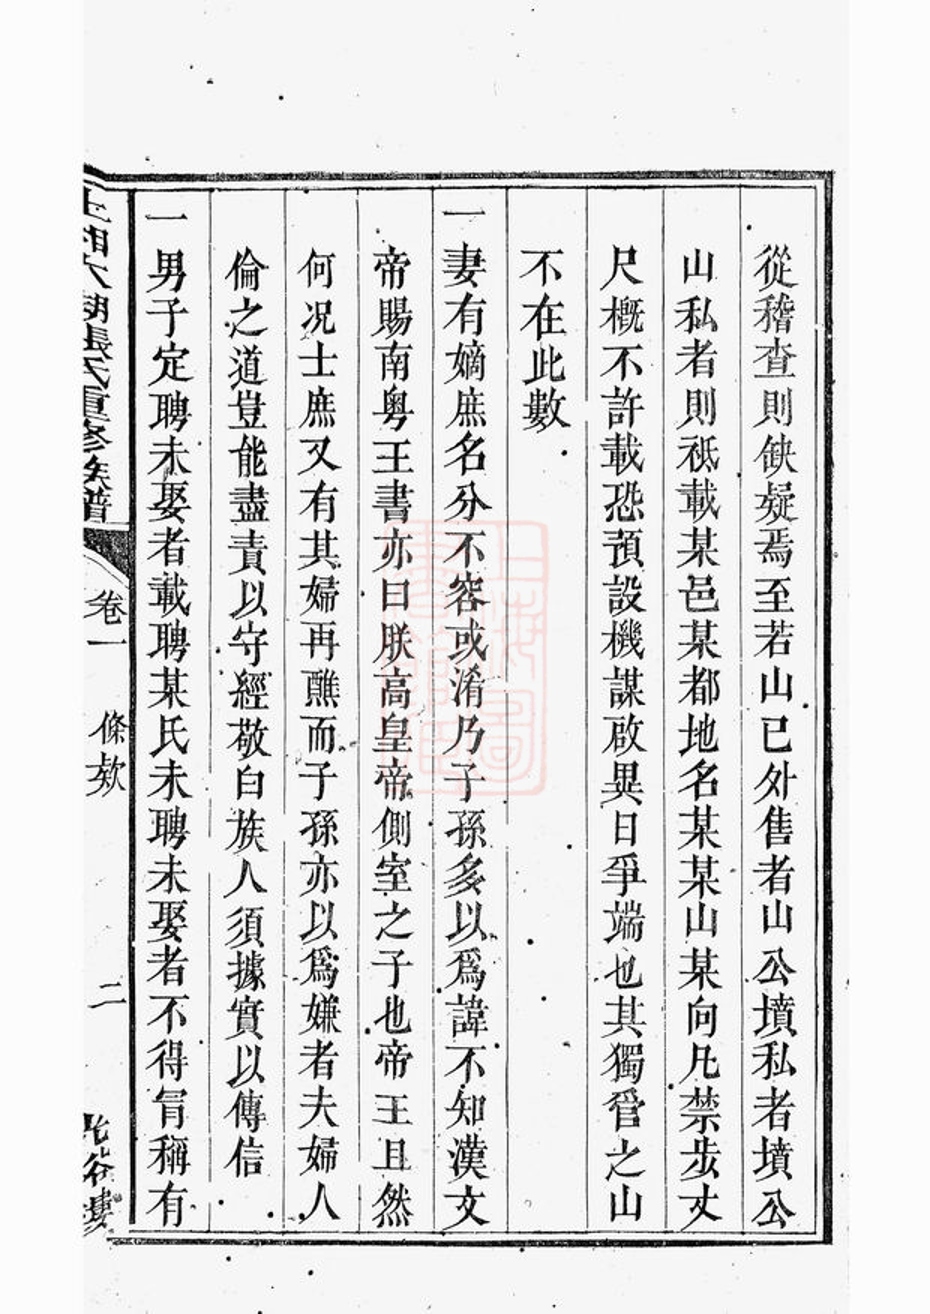 從稽查則缺疑焉至若山已外售者山公墳私者墳公
山私者則祗載某邑某都地名某某山某向凡禁步丈
尺概不許載恐預設機謀啟異日爭端也其獨管之山
不在此數
一妻有嫡庶名分不容或淆乃子孫多以爲諱不知漢文
帝賜南粤王書亦曰朕高皇帝側室之子也帝王且然
何况士庶又有其婦再醮而子孫亦以爲嫌者夫婦人
倫之道豈能盡責以守經敬白族人須據實以傳信
一男子定聘未娶者載聘某氏未聘未娶者不得冐稱有
上湘大湖張氏重修族譜
卷一
條欵
二